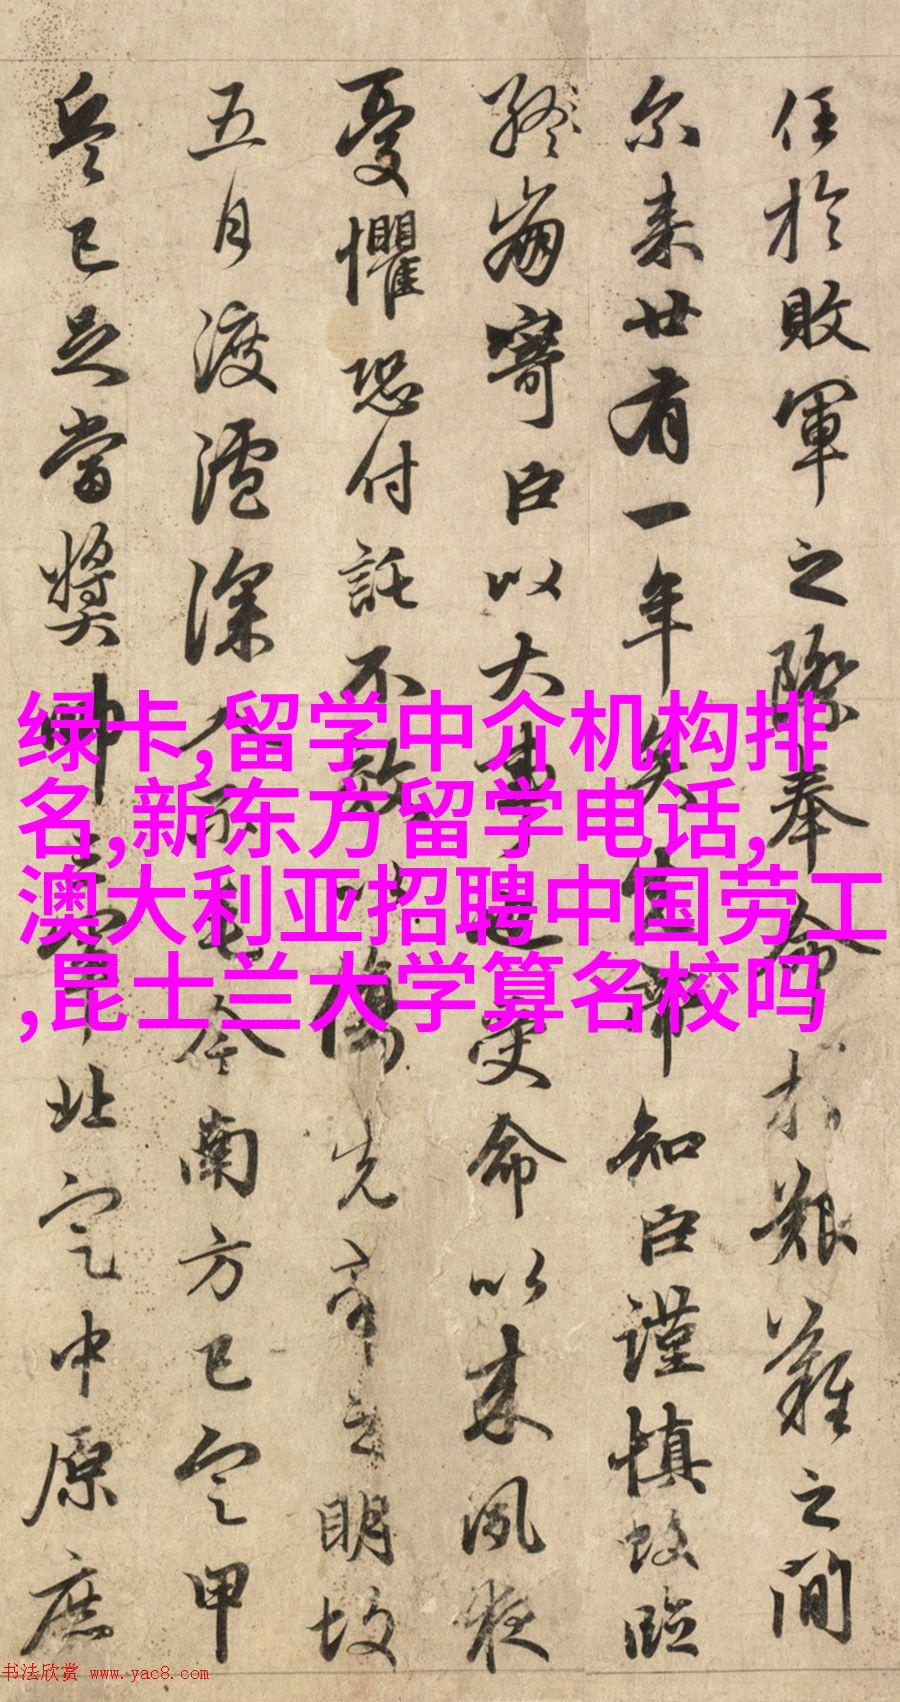 任於敗軍之際奉命於艱難之間
尔来廿有一年矣先帝知臣謹慎故臨
終崩寄臣以大事也受命以来夙夜
憂懼恐付託不效以傷先帝之明故
五月渡瀘深入不毛今南方已定甲
兵已足當獎帥三軍北定中原庶
绿卡,留学中介机构排
名,新东方留学电话,
澳大利亚招聘中国劳工
,昆士兰大学算名校吗
书法欣赏 www.yac8.com